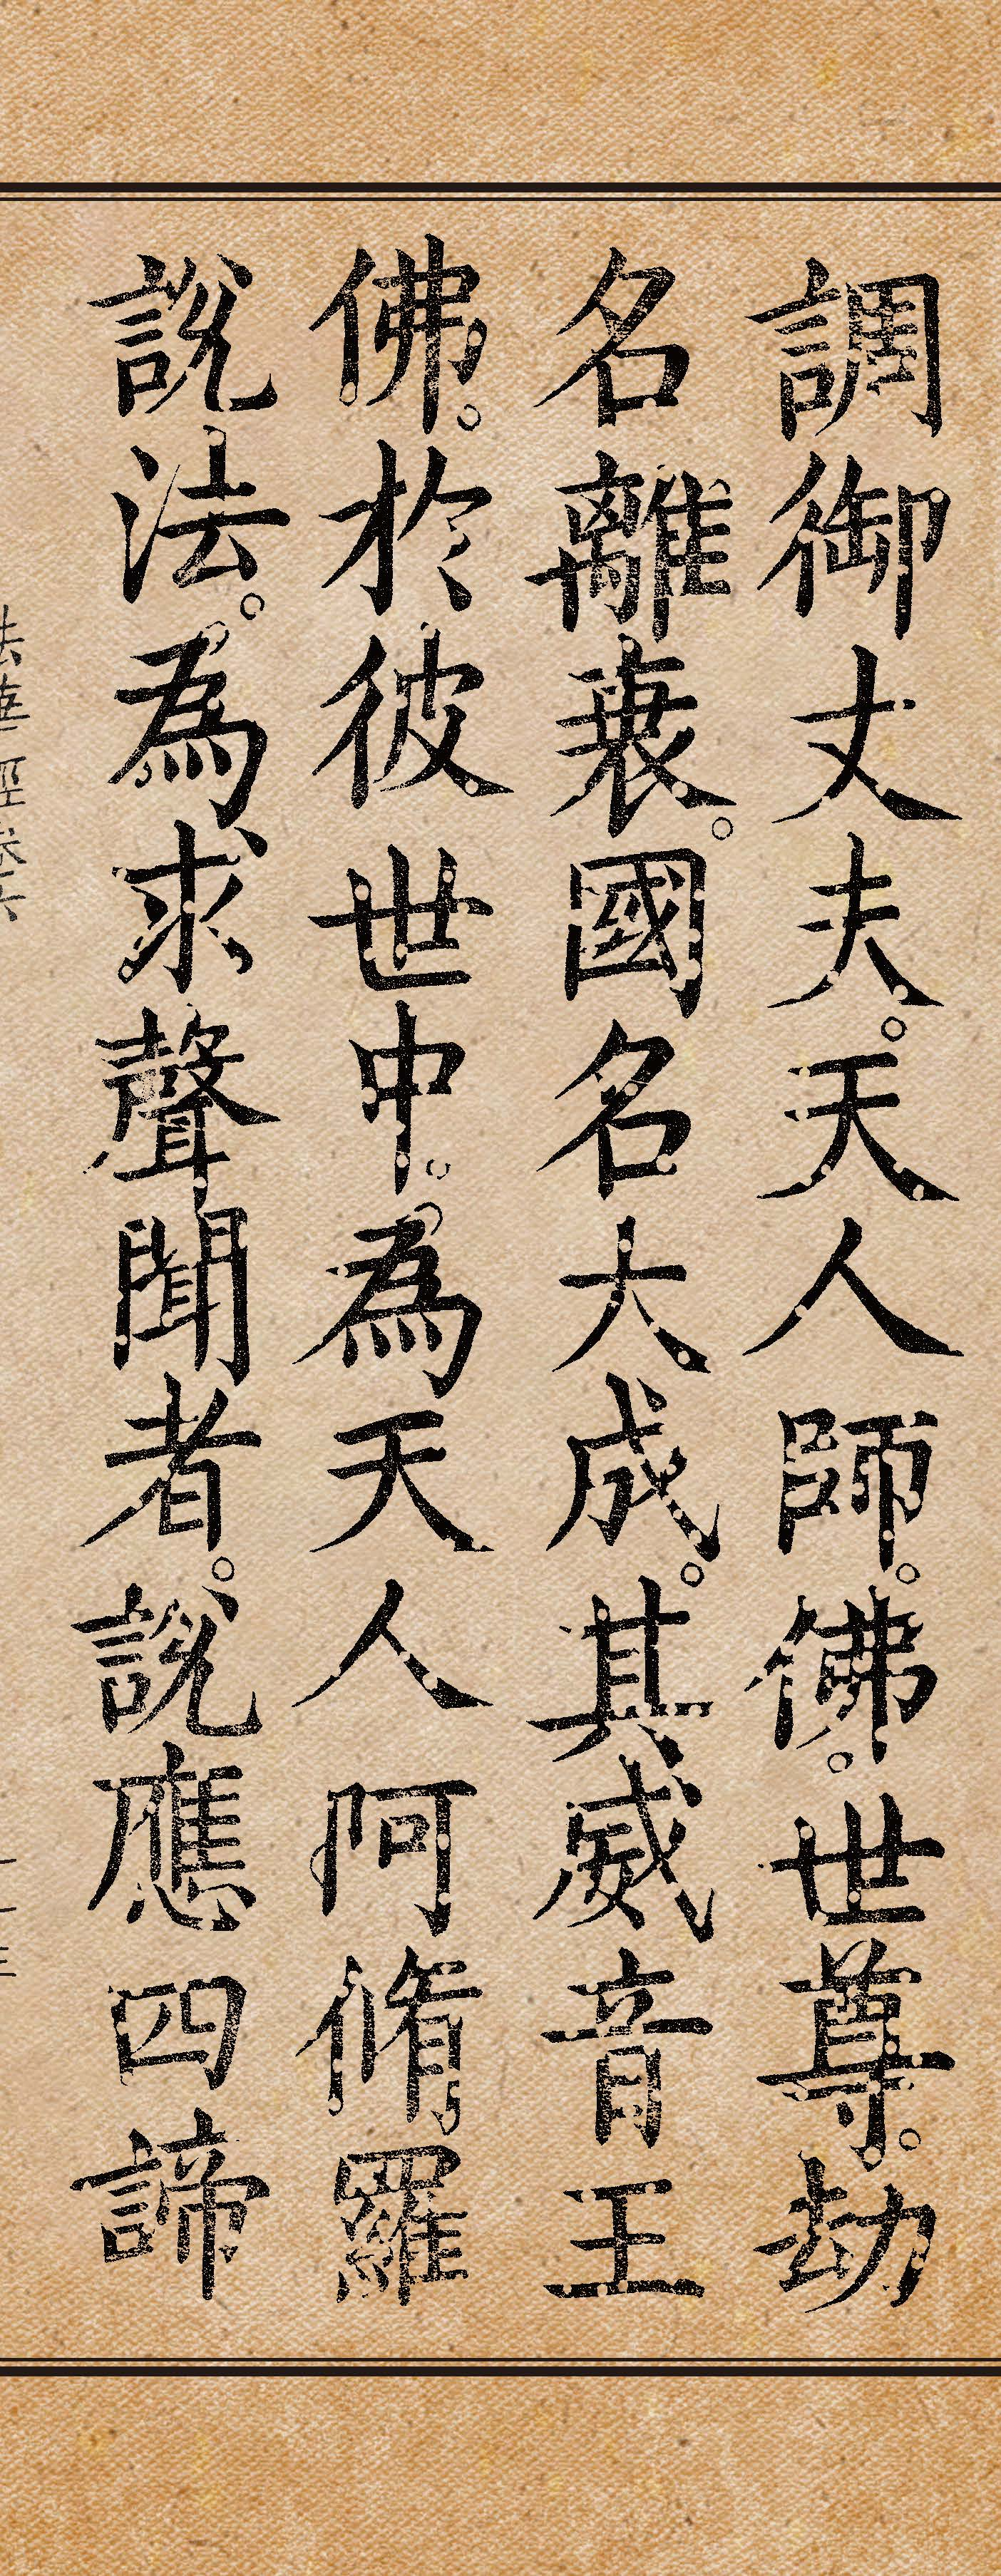 調御丈夫。天人師。佛。世尊。劫
名離衰。國名大成。其威音王
佛。於彼世中。為天人阿脩羅
說法。為求聲聞者。說應四諦
法華經卷六